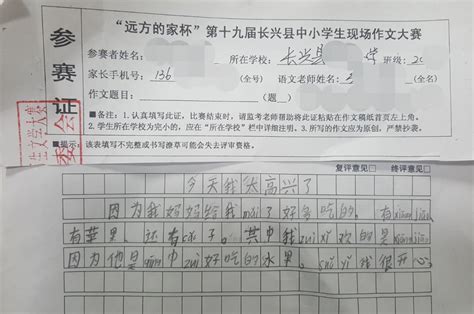 参赛证
“远方的家杯”第十九届长兴县中小学生现场作文大赛
参赛者姓名: 所在学校: 长兴县 学 班级: 20
家长手机号: 136 (全号) 语文老师姓名: (全名)
作文题目: (题 )
■备注: 1.认真填写此证, 比赛结束时, 请监考老师帮助将此证粘贴在作文稿纸首页左上角。
2.学生所在学校为完小的, 应在“所在学校”栏中详细注明。3.所写的作文应为原创, 严禁抄袭。
■提示: 该表填写不完整或书写潦草可能会失去评审资格。
复评意见 终评意见
今天我太高兴了
因为我妈妈给我mǎi了好多吃的。有xiāng jiāo,
有苹果, 还有 子。其中我zuì xǐ欢的是xiāng jiāo,
因为他是 中zuì好吃的水果。suǒ yǐ我很开心。